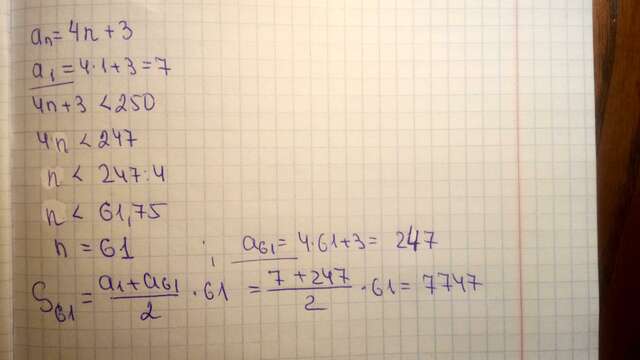 aₙ = 4n + 3
a₁ = 4·1 + 3 = 7
4n + 3 < 250
4·n < 247
n < 247 : 4
n < 61,75
n = 61 ; a₆₁ = 4·61 + 3 = 247
S₆₁ = (a₁ + a₆₁)/2 · 61 = (7 + 247)/2 · 61 = 7747